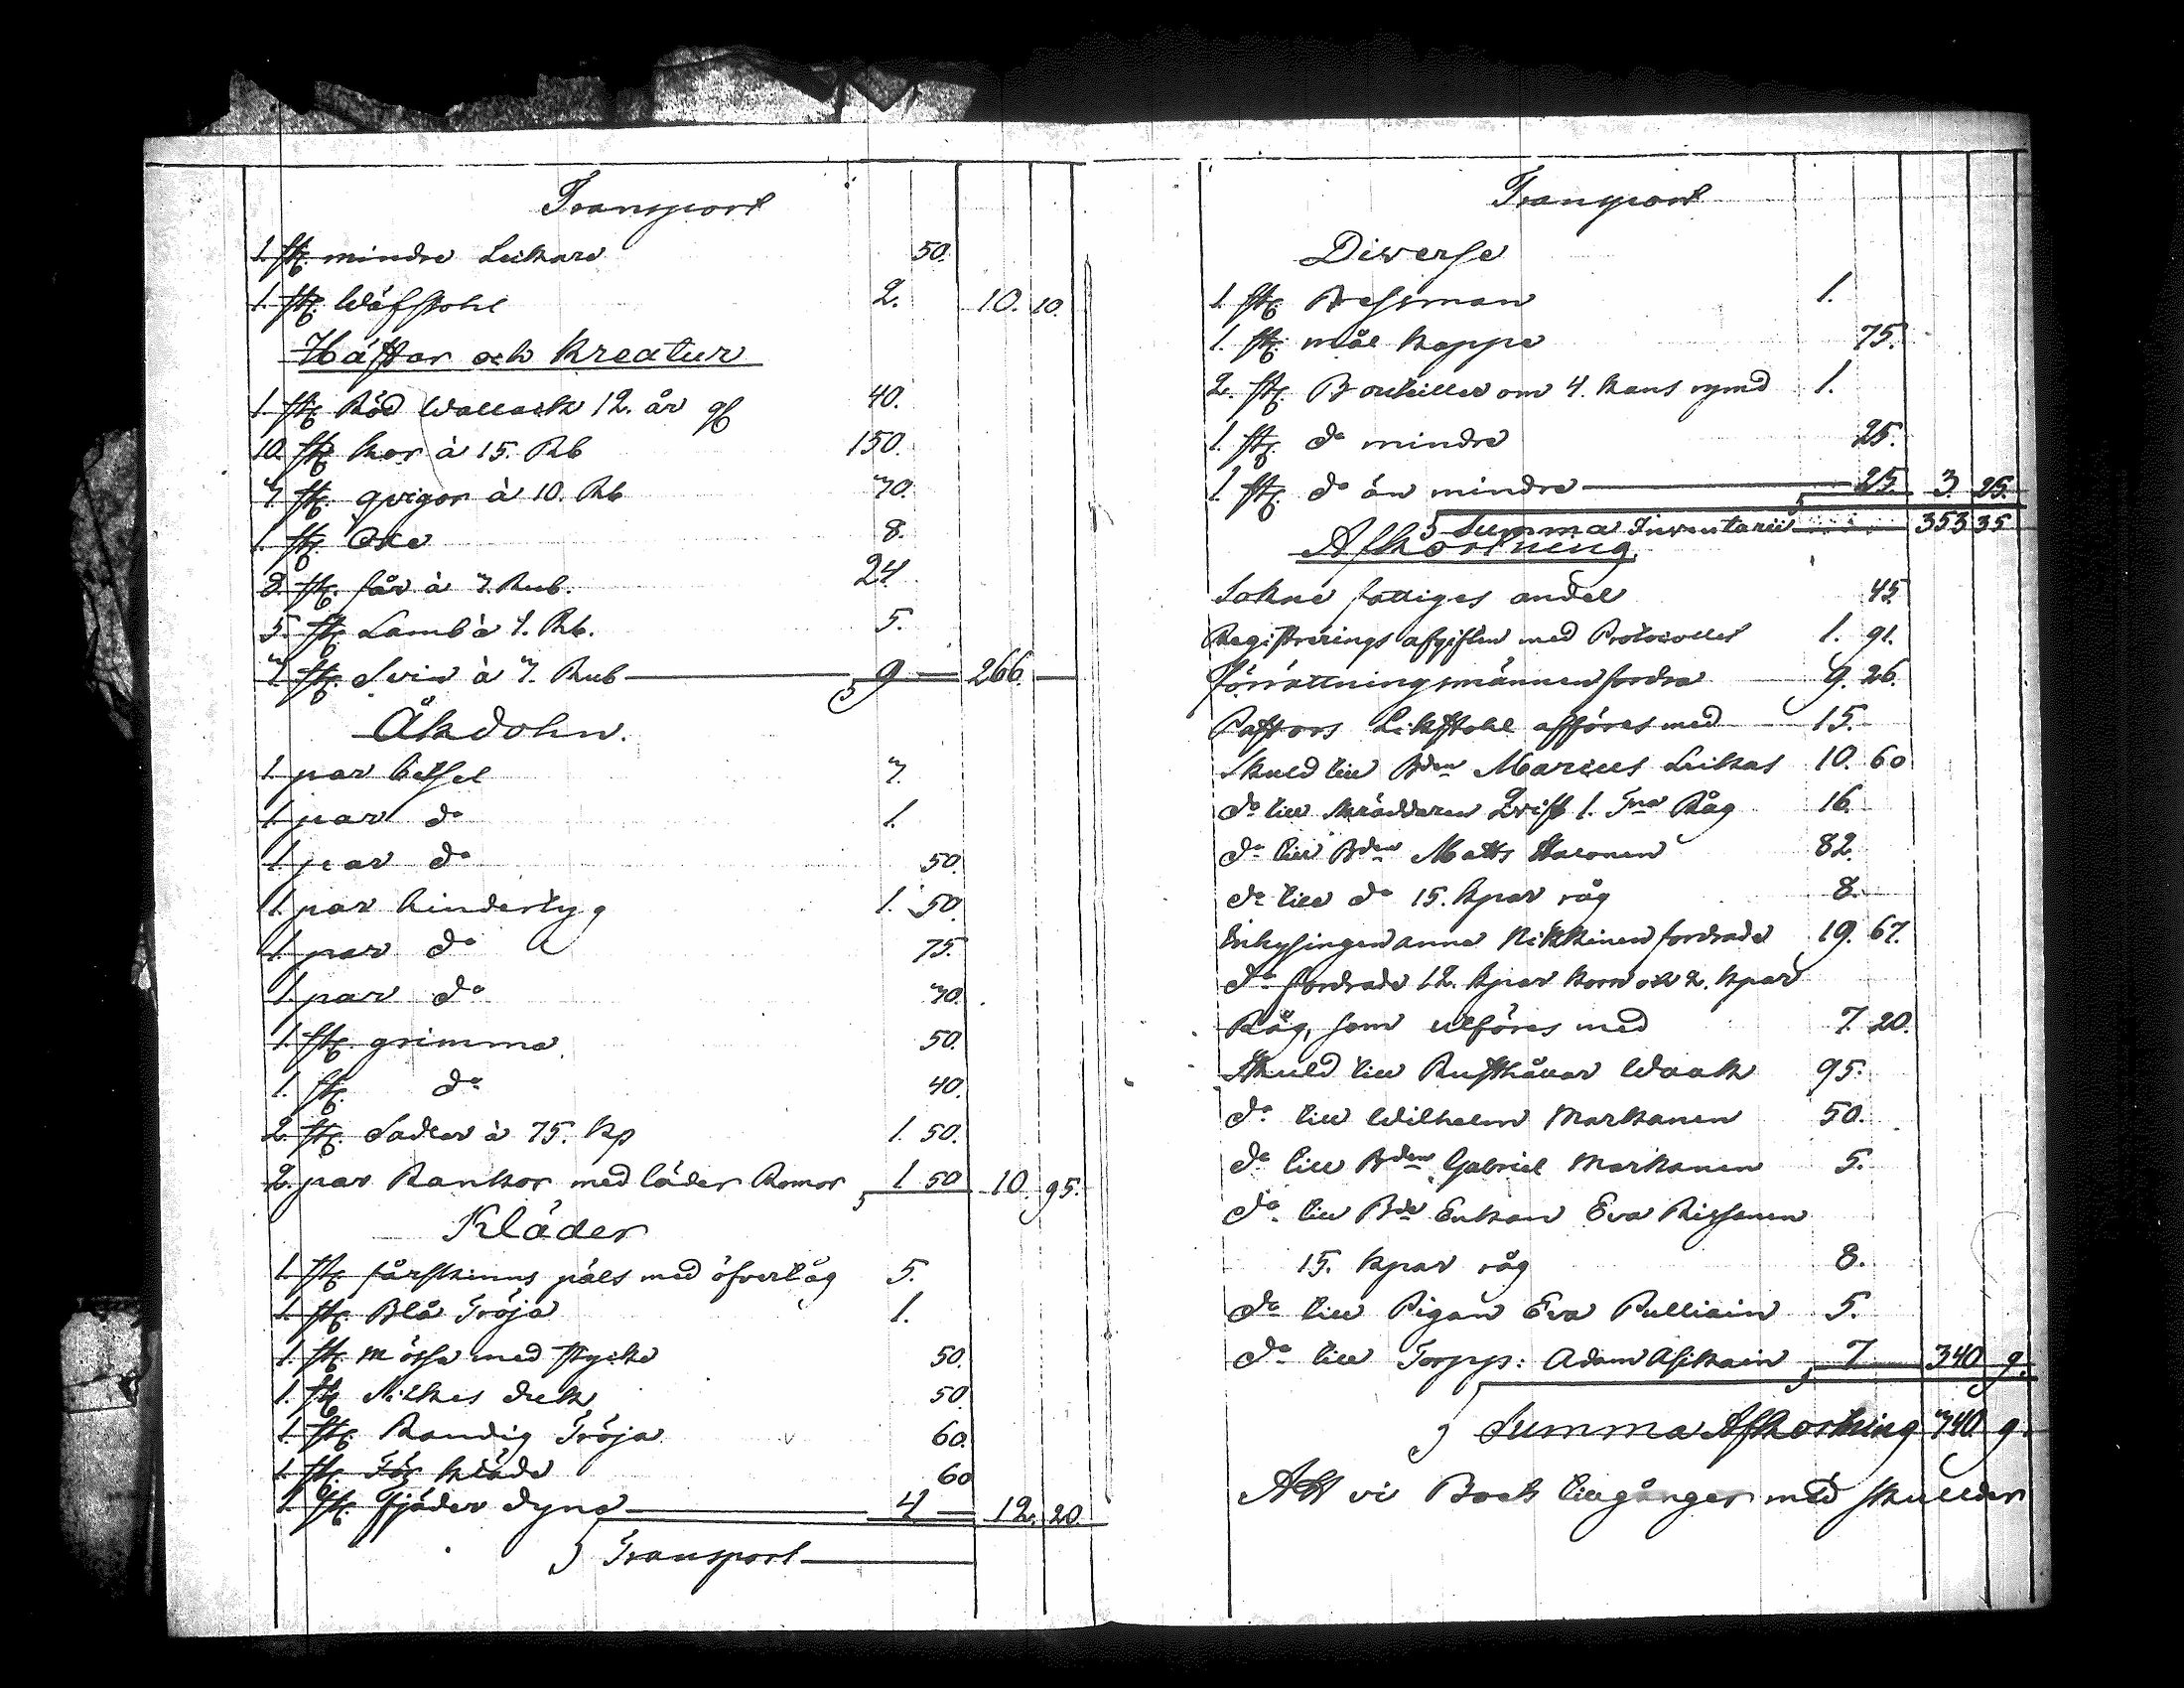 Transport
1. st. mindre Leikare 50.
1. st. Wäfstohl 2. 10. 10.
Hästar och Kreatur
1. st. Röd Wallack 12. år gl 40.
10. st. kor à 15. Rb 150.
3. st. qvigor à 10. Rb 30.
1. st. Oxe 8.
8. st. får à 3. Rub. 24
5. st. Lamb à 1. Rb. 5.
3. st. Svin à 3. Rub 9 266.
Åkdohn.
1. par betsel 3.
1. par do 1.
1. par do 50.
1. par hindertyg 1. 50.
1. par do 75.
1. par do 30.
1. st. grimma 50.
1. st. do 40.
2. st. Sadlar à 75. kp 1. 50.
2. par Rankor med läder Remor 1 50 10. 95.
Kläder
1. st. fårskinns päls med öfvertåg 5.
1. st. Blå Tröja 1.
1. st. mössa med stycke 50.
1. st. Silkes duk 50.
1. st. Randig Tröja 60.
1. st. kläde 60
1. st. fjäder dyna 4 12. 20.
Transport
Transport
Diverse
1. st. Bessman 1.
1. st. mål kappe 75.
2. st. Bouteiller om 4. kans rymd 1.
1. st. do mindre 25.
1. st. do än mindre 25. 3. 25.
Summa Inventarii 353 35
Afkortning
Sokne fattiges andel 45
Registrerings afgiften med Protocollet 1. 91.
förrättningsmännen fordra 9. 26.
Pastors Likstohl afföres med 15.
Skuld till Bden Marcus Leikas 10. 60
do till skräddaren Qvist 1. Tna Råg 16.
do till Bden Matts 82.
do till do 15. kpar råg 8.
Inhysingen anna Nikkinen fordrade 19. 67.
do fordrade 12. kpar korn och 2. kpar
Råg, som utföres med 7. 20.
Skuld till Rusthållar Waak 95.
do till Wilhelm Markanen 50.
do till Bden Gabriel Markanen 5.
do till Bde Enkan Eva Rissanen
15. kpar råg 8.
do till Pigan Eva Pulliain 5.
do till Torpp: Adam Asikain 7 340 9.
Summa Afkortning 340 9.
Att vi Boets tillgångar med skulder